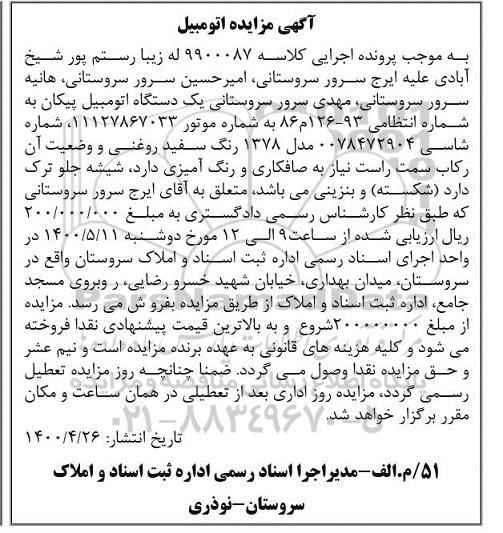 آگهی مزایده اتومبیل
به موجب پرونده اجرایی کلاسه ۹۹۰۰۰۸۷ له زیبا رستم پور شیخ
آبادی علیه ایرج سرور سروستانی، امیرحسین سرور سروستانی، هانیه
سرور سروستانی، مهدی سرور سروستانی یک دستگاه اتومبیل پیکان به
شماره انتظامی ۹۳-۱۲۶م۸۶ به شماره موتور ۱۱۱۲۷۸۶۷۰۳۳، شماره
شاسی ۰۰۷۸۴۷۲۹۰۴ مدل ۱۳۷۸ رنگ سفید روغنی و وضعیت آن
رکاب سمت راست نیاز به صافکاری و رنگ آمیزی دارد، شیشه جلو ترک
دارد (شکسته) و بنزینی می باشد، متعلق به آقای ایرج سرور سروستانی
که طبق نظر کارشناس رسمی دادگستری به مبلغ ۲۰۰/۰۰۰/۰۰۰
ریال ارزیابی شده از ساعت۹ الی ۱۲ مورخ دوشنبه ۱۴۰۰/۵/۱۱ در
واحد اجرای اسناد رسمی اداره ثبت اسناد و املاک سروستان واقع در
سروستان، میدان بهداری، خیابان شهید خسرو رضایی، روبروی مسجد
جامع، اداره ثبت اسناد و املاک از طریق مزایده بفروش می رسد. مزایده
از مبلغ ۲۰۰۰۰۰۰۰۰شروع و به بالاترین قیمت پیشنهادی نقدا فروخته
می شود و کلیه هزینه های قانونی به عهده برنده مزایده است و نیم عشر
و حق مزایده نقدا وصول می گردد. ضمنا چنانچه روز مزایده تعطیل
رسمی گردد، مزایده روز اداری بعد از تعطیلی در همان ساعت و مکان
مقرر برگزار خواهد شد.
۰۲۱-۸۸۳۴۹۶۷۰-۵
تاریخ انتشار: ۱۴۰۰/۴/۲۶
۵۱/م.الف-مدیراجرا اسناد رسمی اداره ثبت اسناد و املاک
سروستان-نوذری